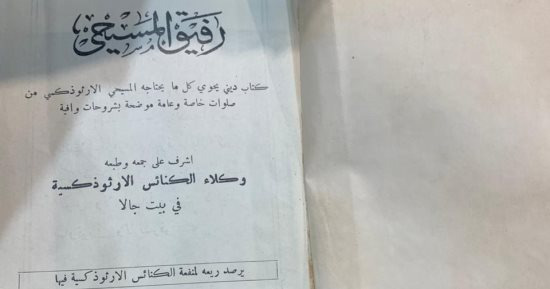 رفيق المسيحي
كتاب ديني يحوي كل ما يحتاجه المسيحي الارثوذكسي من
صلوات خاصة وعامة موضحة بشروحات وافية
اشرف على جمعه وطبعه
وكلاء الكنائس الارثوذكسية
في بيت جالا
يرصد ريعه لمنفعة الكنائس الارثوذكسية فيها